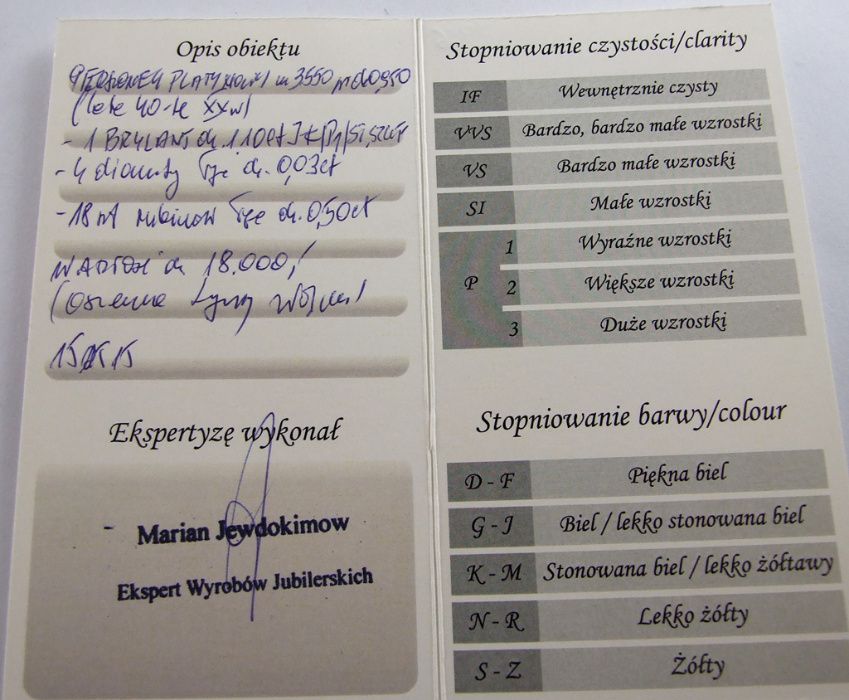 Opis obiektu
PIERŚCIONEK PLATYNOWY m 3550 0,950
(lata 40-te XXw)
- 1 BRYLANT ok. 1.10ct
- 4 diamenty łącz. ok. 0,03ct
- 18 szt rubinów łącz. ok. 0,50ct
WARTOŚĆ ok 18.000,/
Ekspertyzę wykonał
Marian Jewdokimow
Ekspert Wyrobów Jubilerskich
Stopniowanie czystości/clarity
IF Wewnętrznie czysty
VVS Bardzo, bardzo małe wzrostki
VS Bardzo małe wzrostki
SI Małe wzrostki
P
1 Wyraźne wzrostki
2 Większe wzrostki
3 Duże wzrostki
Stopniowanie barwy/colour
D - F Piękna biel
G - J Biel / lekko stonowana biel
K - M Stonowana biel / lekko żółtawy
N - R Lekko żółty
S - Z Żółty